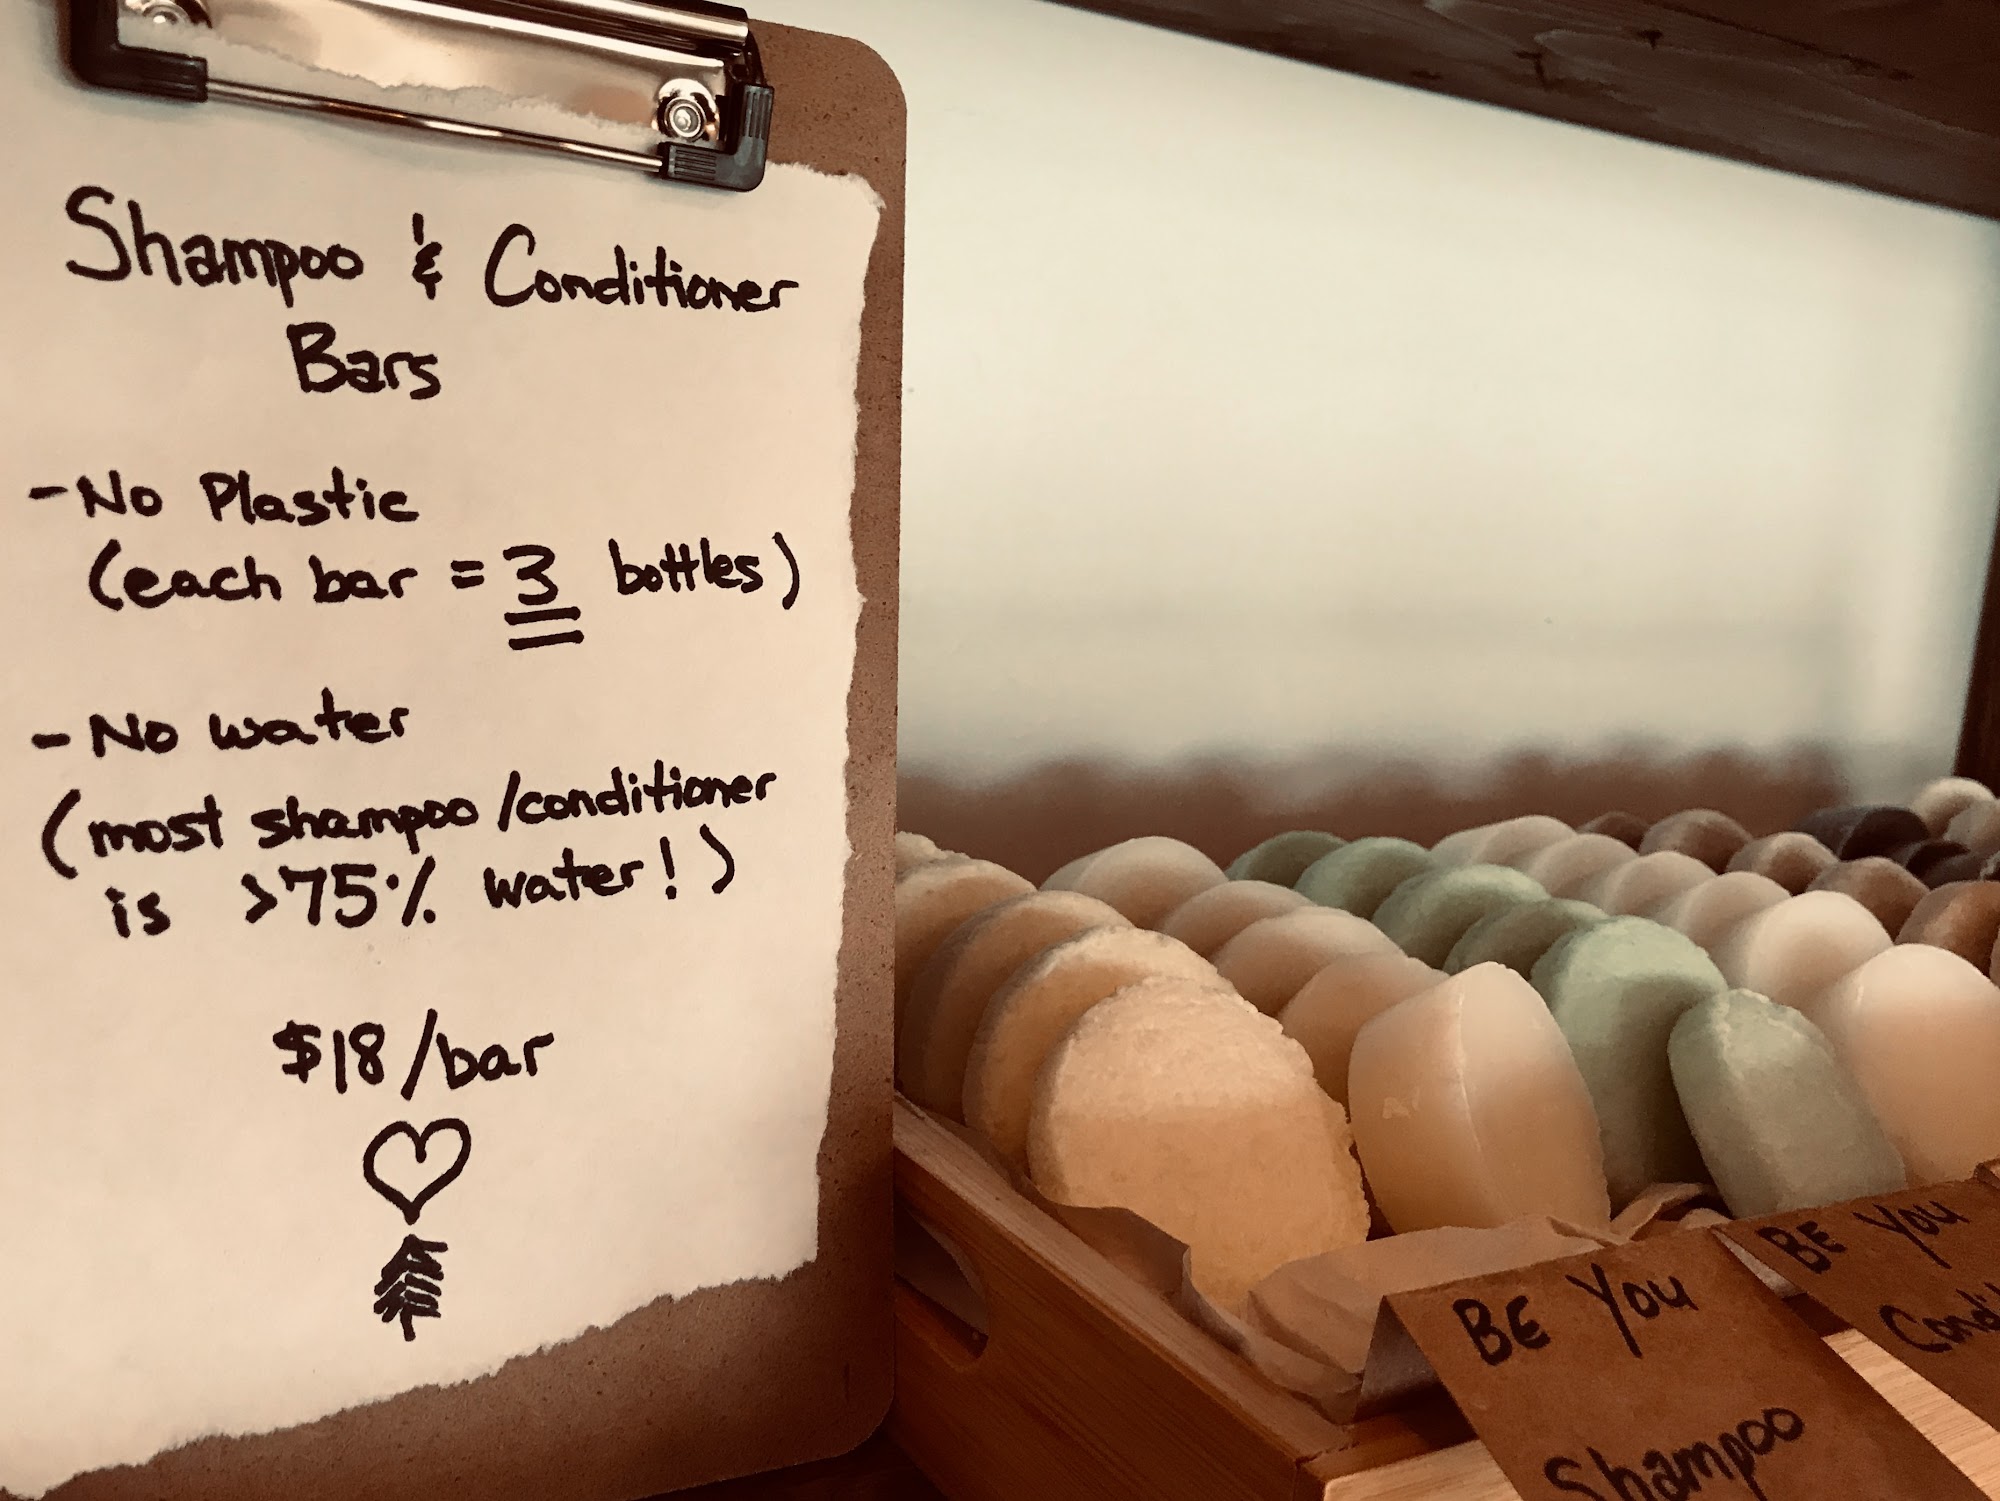 Shampoo & Conditioner
Bars
- No Plastic
(each bar = 3 bottles)
- No water
(most shampoo/conditioner
is >75% water!)
$18/bar
BE You
Shampoo
BE You